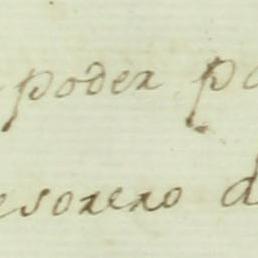 poder pa
esorero d